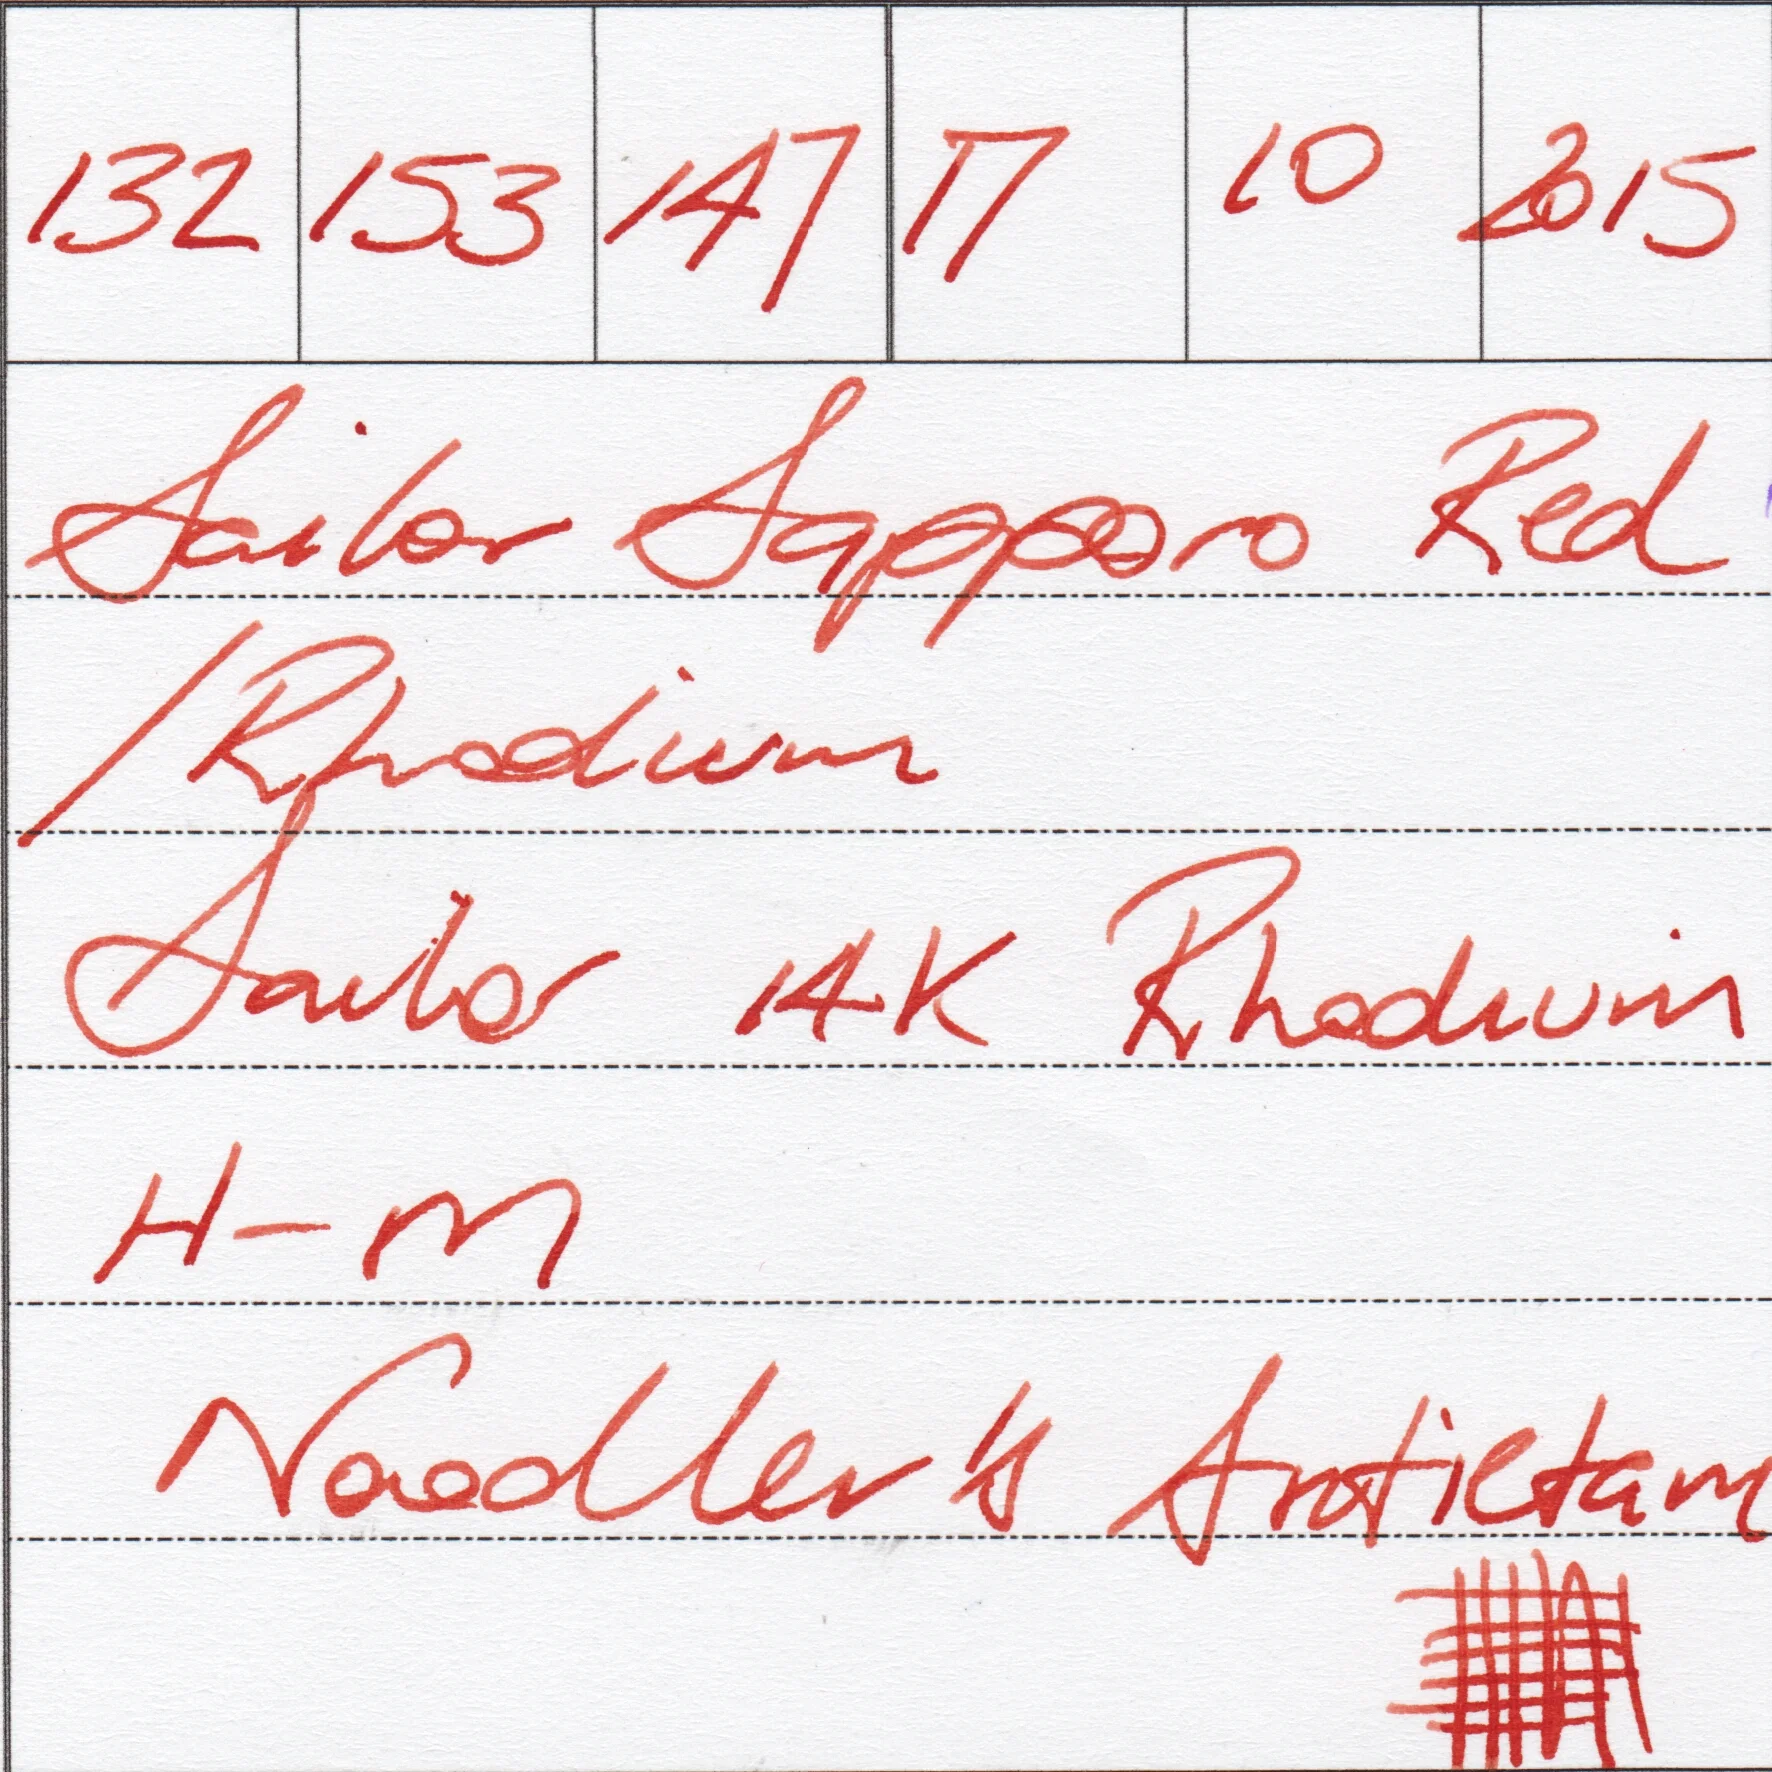 132 153 147 17 10 2015
Sailor Sapporo Red
/Rhodium
Sailor 14K Rhodium
H-M
Noodler's Antietam